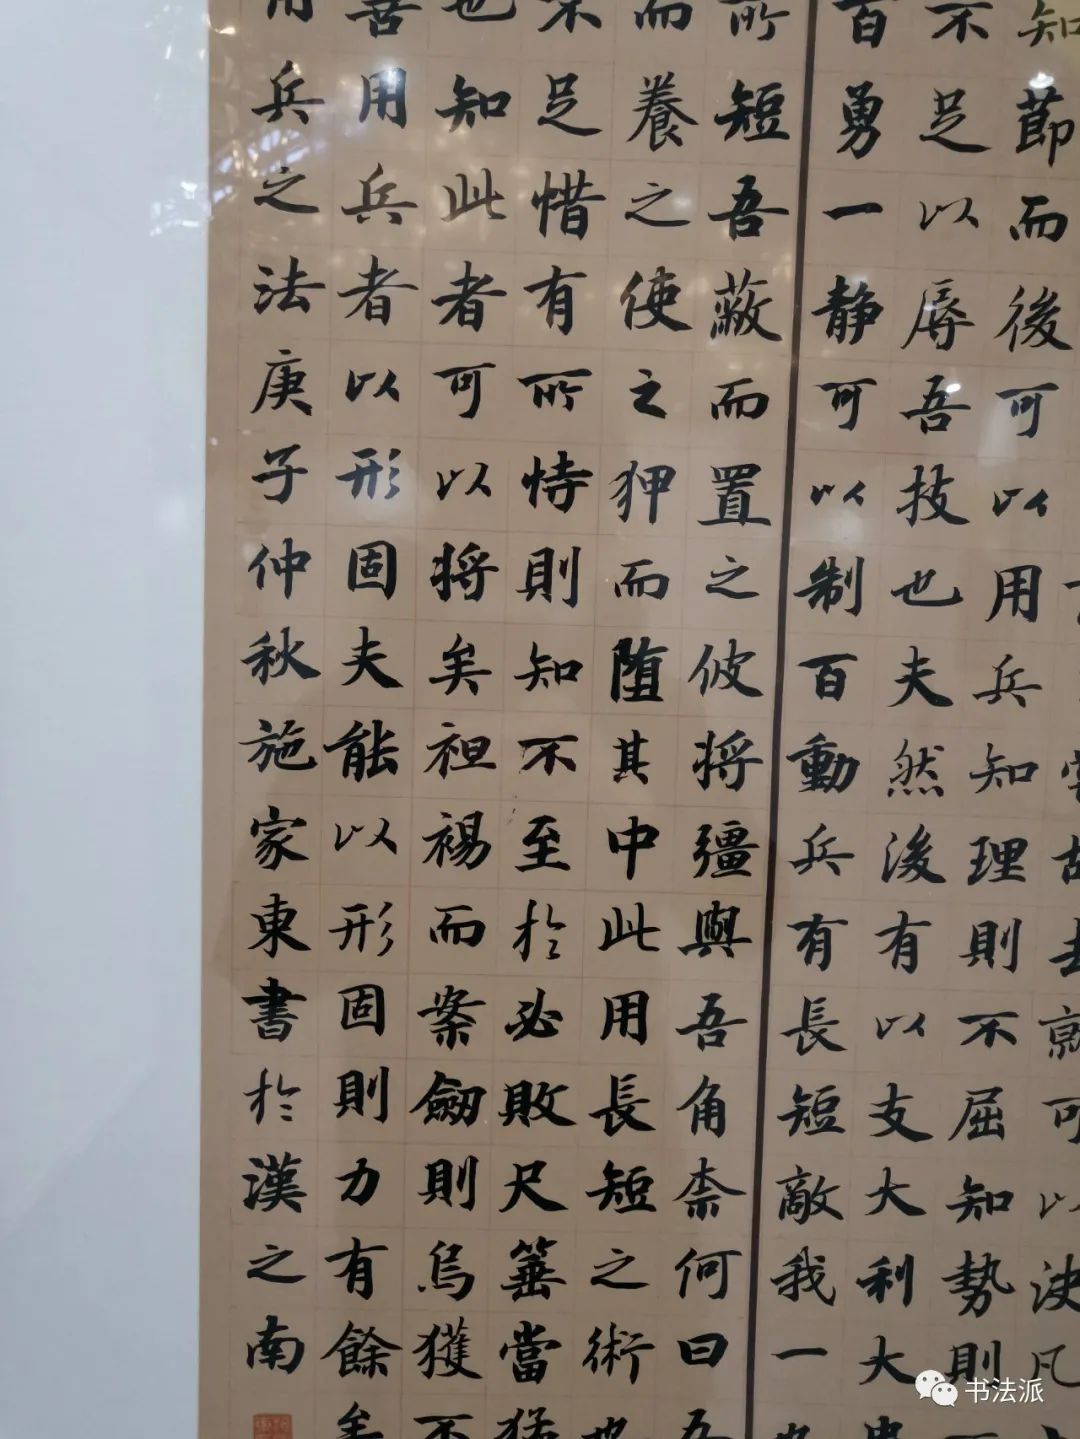 就可以決凡
知節而後可以用兵知理則不屈知勢則不
不足以辱吾技也夫然後有以支大利大患
百勇一静可以制百動兵有長短敵我一也
所短吾蔽而置之彼将彊與吾角柰何曰吾
而養之使之狎而堕其中此用長短之術也
不足惜有所恃則知不至於必敗尺箠當猛
也知此者可以将矣袒裼而案劒則烏獲不
善用兵者以形固夫能以形固則力有餘矣
用兵之法庚子仲秋施家東書於漢之南
书法派